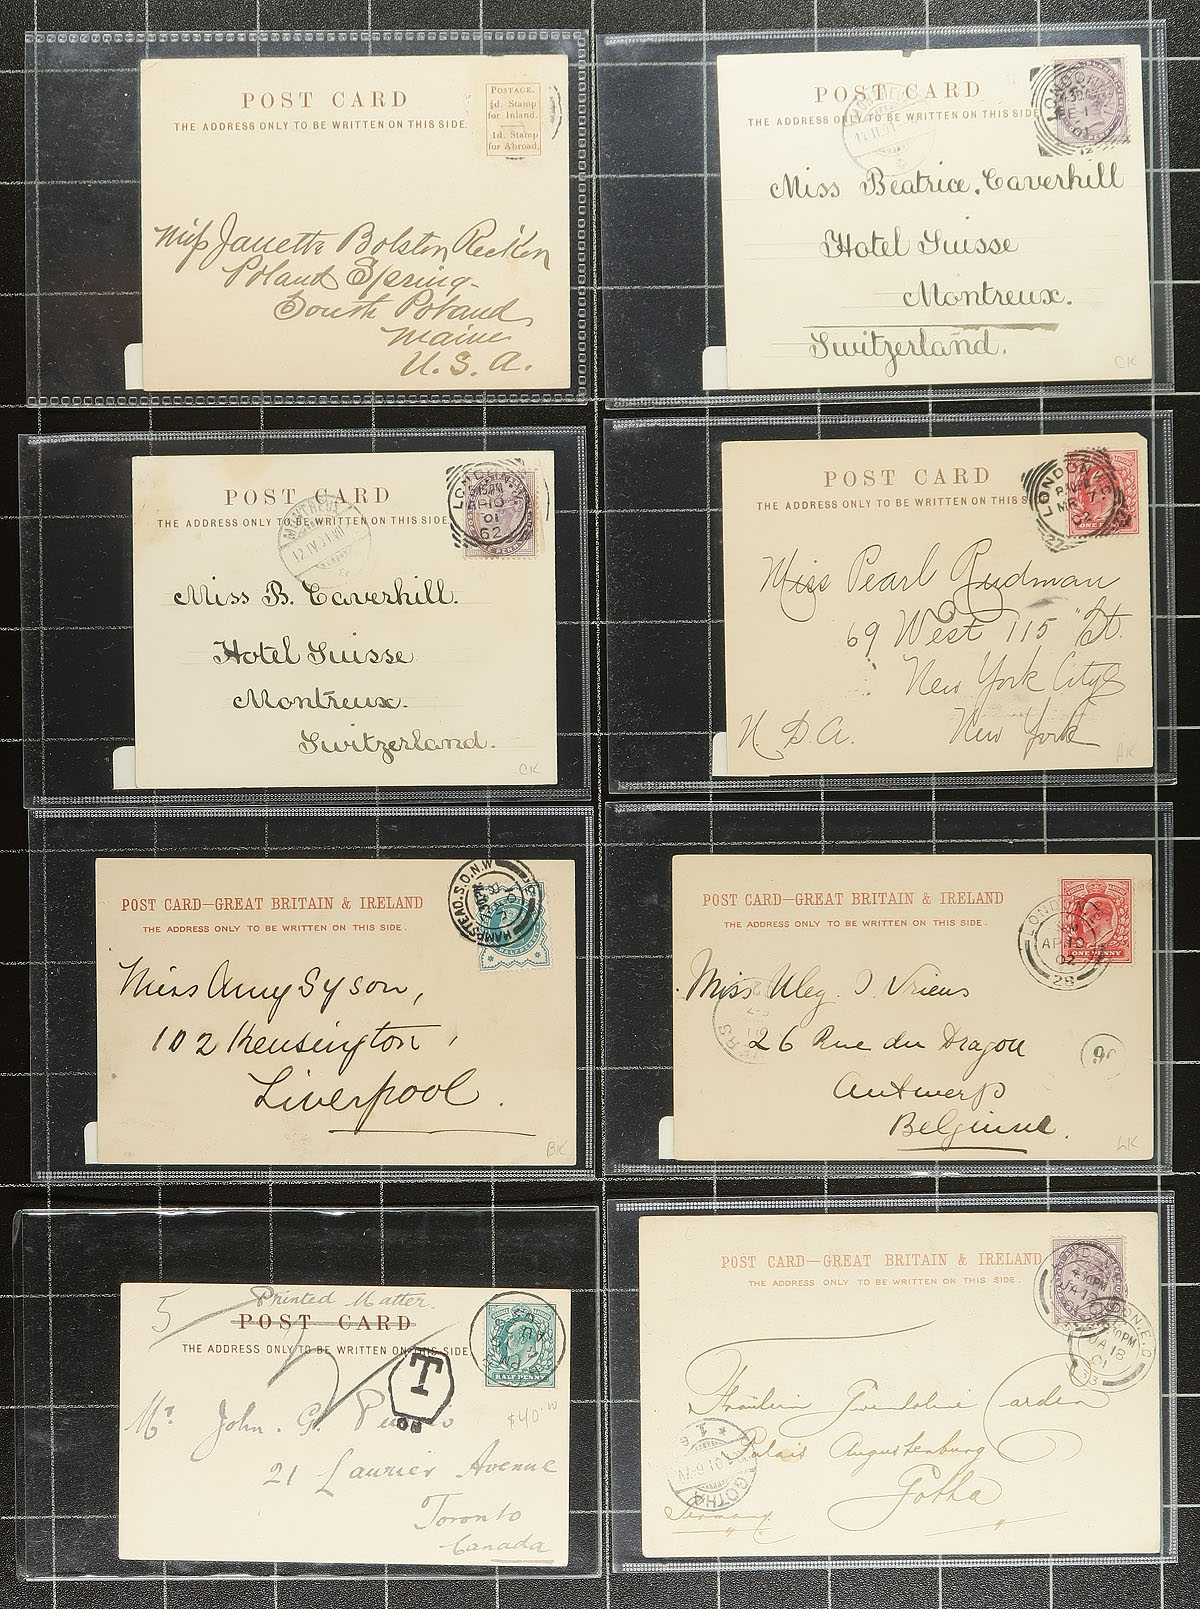 POST CARD
THE ADDRESS ONLY TO BE WRITTEN ON THIS SIDE
POSTAGE.
½d. Stamp
for Inland.
1d. Stamp
for Abroad.
Miss Janette Bolston
Poland Spring
South Poland
Maine
U. S. A.
POST CARD
THE ADDRESS ONLY TO BE WRITTEN ON THIS SIDE
LONDON
Miss Beatrice Caverhill
Hotel Suisse
Montreux.
Switzerland.
CK
POST CARD
THE ADDRESS ONLY TO BE WRITTEN ON THIS SIDE
MONTREUX
12.IV.01
LONDON.W
AP 10
01
62
Miss B. Caverhill.
Hotel Suisse
Montreux.
Switzerland.
CK
POST CARD
THE ADDRESS ONLY TO BE WRITTEN ON THIS S
LONDON
MR 7
02
ONE PENNY
Miss Pearl Rudman
69 West 115 St.
New York City
New York
U. S. A.
AK
POST CARD—GREAT BRITAIN & IRELAND
THE ADDRESS ONLY TO BE WRITTEN ON THIS SIDE.
HAMPSTEAD.S.O.N.W
Miss Amy Syson,
102 Kensington,
Liverpool.
BK
POST CARD—GREAT BRITAIN & IRELAND
THE ADDRESS ONLY TO BE WRITTEN ON THIS SIDE.
LONDON
AP 10
02
28
ONE PENNY
Miss Vriens
26 Rue du Dragon
Antwerp
Belgium.
LK
5
Printed Matter.
POST CARD
THE ADDRESS ONLY TO BE WRITTEN ON THIS SIDE
HALF PENNY
T
Mr. John. G.
21 Laurier Avenue
Toronto
Canada
$40.00
POST CARD—GREAT BRITAIN & IRELAND
THE ADDRESS ONLY TO BE WRITTEN ON THIS SIDE.
JA 18
01
Fräulein Gwendoline Carden
Palais Augustenburg
Gotha
Germany
GOTHA